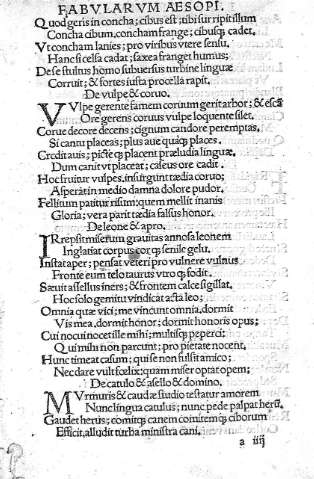 FABVLARVM AESOPI.
Quod geris in concha; cibus est; ubi surripit illum
Concha cibum, concham frange; cibusq; cadet.
Vt concham lanies; pro viribus vtere sensu.
Hanc si celsa cadat; saxea franget humus;
De se stulus homo subuersus turbine linguæ
Corruit; & fortes iusta procella rapit.
De vulpe & coruo.
VVlpe gerente famem coruum gerit arbor; & escā
Ore gerens coruus vulpe loquente silet.
Corue decore decens; cignum candore peremptas.
Si cantu placeas; plus aue quaq; places.
Credit auis; pictęq; placent præludia linguæ.
Dum canit vt placeat; caseus ore cadit.
Hoc fruitur vulpes, insurgunt tædia coruo;
Asperat in medio damna dolore pudor.
Fellitum patitur risum; quem mellit inanis
Gloria; vera parit tædia falsus honor.
De leone & apro.
IRrepsit miserum grauitas annosa leonem
In glaciat corpus cor q; senile gelu.
Instat aper; pensat veteri pro vulnere vulnus
Fronte eum telo taurus vtroq; fodit.
Sæuit asellus iners; & frontem calce sigillat.
Hoc solo gemitu vindicat acta leo;
Omnia quæ vici; me vincunt omnia, dormit
Vis mea, dormit honor; dormit honoris opus;
Cui nocui nocet ille mihi; multisq; peperci
Qui mihi non parcunt; pro pietate nocent.
Hunc timeat casum; qui se non fulsit amico;
Nec dare vult fœlix; quam miser optat opem;
De catulo & asello & domino.
MVrmuris & caudæ studio testatur amorem
Nunc lingua catulus; nunc pede palpat herū.
Gaudet herus; comitq; canem comitem q; ciborum
Efficit, alludit turba ministra cani.
a iiij